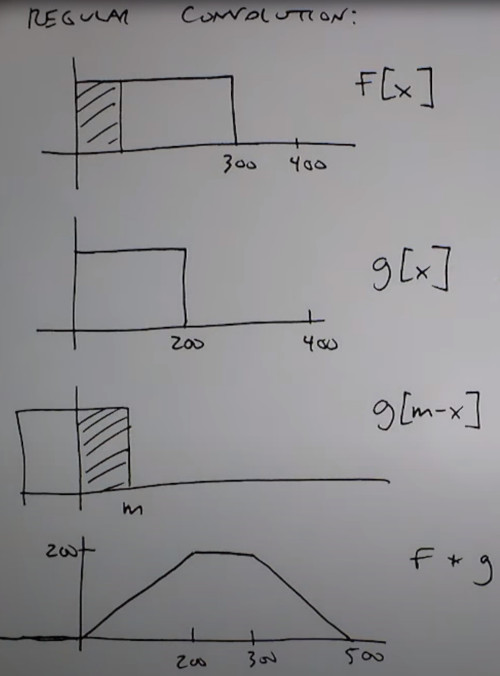 REGULAR CONVOLUTION:
F[x]
300 400
g[x]
200 400
g[m-x]
m
200
F * g
200 300 500